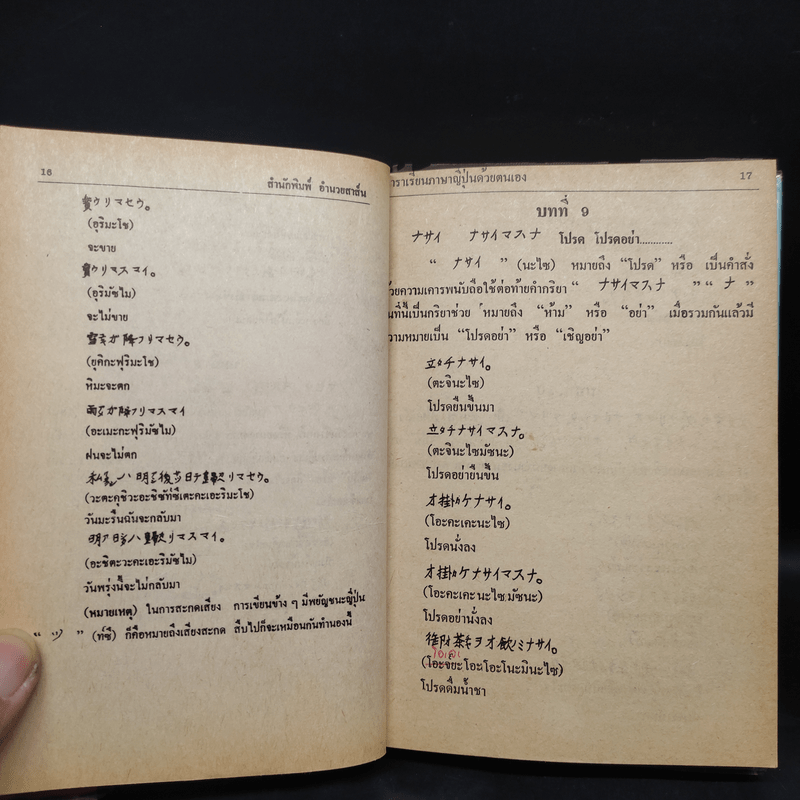 16
สำนักพิมพ์ อำนวยสาส์น
賣ウリマセウ。
(อุริมะโช)
จะขาย
賣ウリマスマイ。
(อุริมัซไม)
จะไม่ขาย
雪ガ降フリマセウ。
(ยุคิกะฟุริมะโช)
หิมะจะตก
雨ガ降フリマスマイ
(อะเมะกะฟุริมัซไม)
ฝนจะไม่ตก
(วะตะคุชิวะอะชิซัทซึเตะคะเอะริมะโช)
วันมะรืนฉันจะกลับมา
(อะชิตะวะคะเอะริมัซไม)
วันพรุ่งนี้จะไม่กลับมา
(หมายเหตุ) ในการสะกดเสียง การเขียนข้าง ๆ มีพยัญชนะญี่ปุ่น
“ ッ ” (ท์ซึ) ก็คือหมายถึงเสียงสะกด สืบไปก็จะเหมือนกันทำนองนี้
ำราเรียนภาษาญี่ปุ่นด้วยตนเอง
17
บทที่ 9
ナサイ ナサイマスナ โปรด โปรดอย่า............
“ ナサイ ” (นะไซ) หมายถึง “โปรด” หรือ เป็นคำสั่ง
้วยความเคารพนับถือใช้ต่อท้ายคำกริยา “ ナサイマスナ ” “ ナ ”
นที่นี้เป็นกริยาช่วย หมายถึง “ห้าม” หรือ “อย่า” เมื่อรวมกันแล้วมี
วามหมายเป็น “โปรดอย่า” หรือ “เชิญอย่า”
立タチナサイ。
(ตะจินะไซ)
โปรดยืนขึ้นมา
立タチナサイマスナ。
(ตะจินะไซมัซนะ)
โปรดอย่ายืนขึ้น
オ掛カケナサイ。
(โอะคะเคะนะไซ)
โปรดนั่งลง
オ掛カケナサイマスナ。
(โอะคะเคะนะไซมัซนะ)
โปรดอย่านั่งลง
御オ茶チヲオ飲ノミナサイ。
(โอะจ๊ยะโอะโอะโนะมินะไซ)
โปรดดื่มน้ำชา